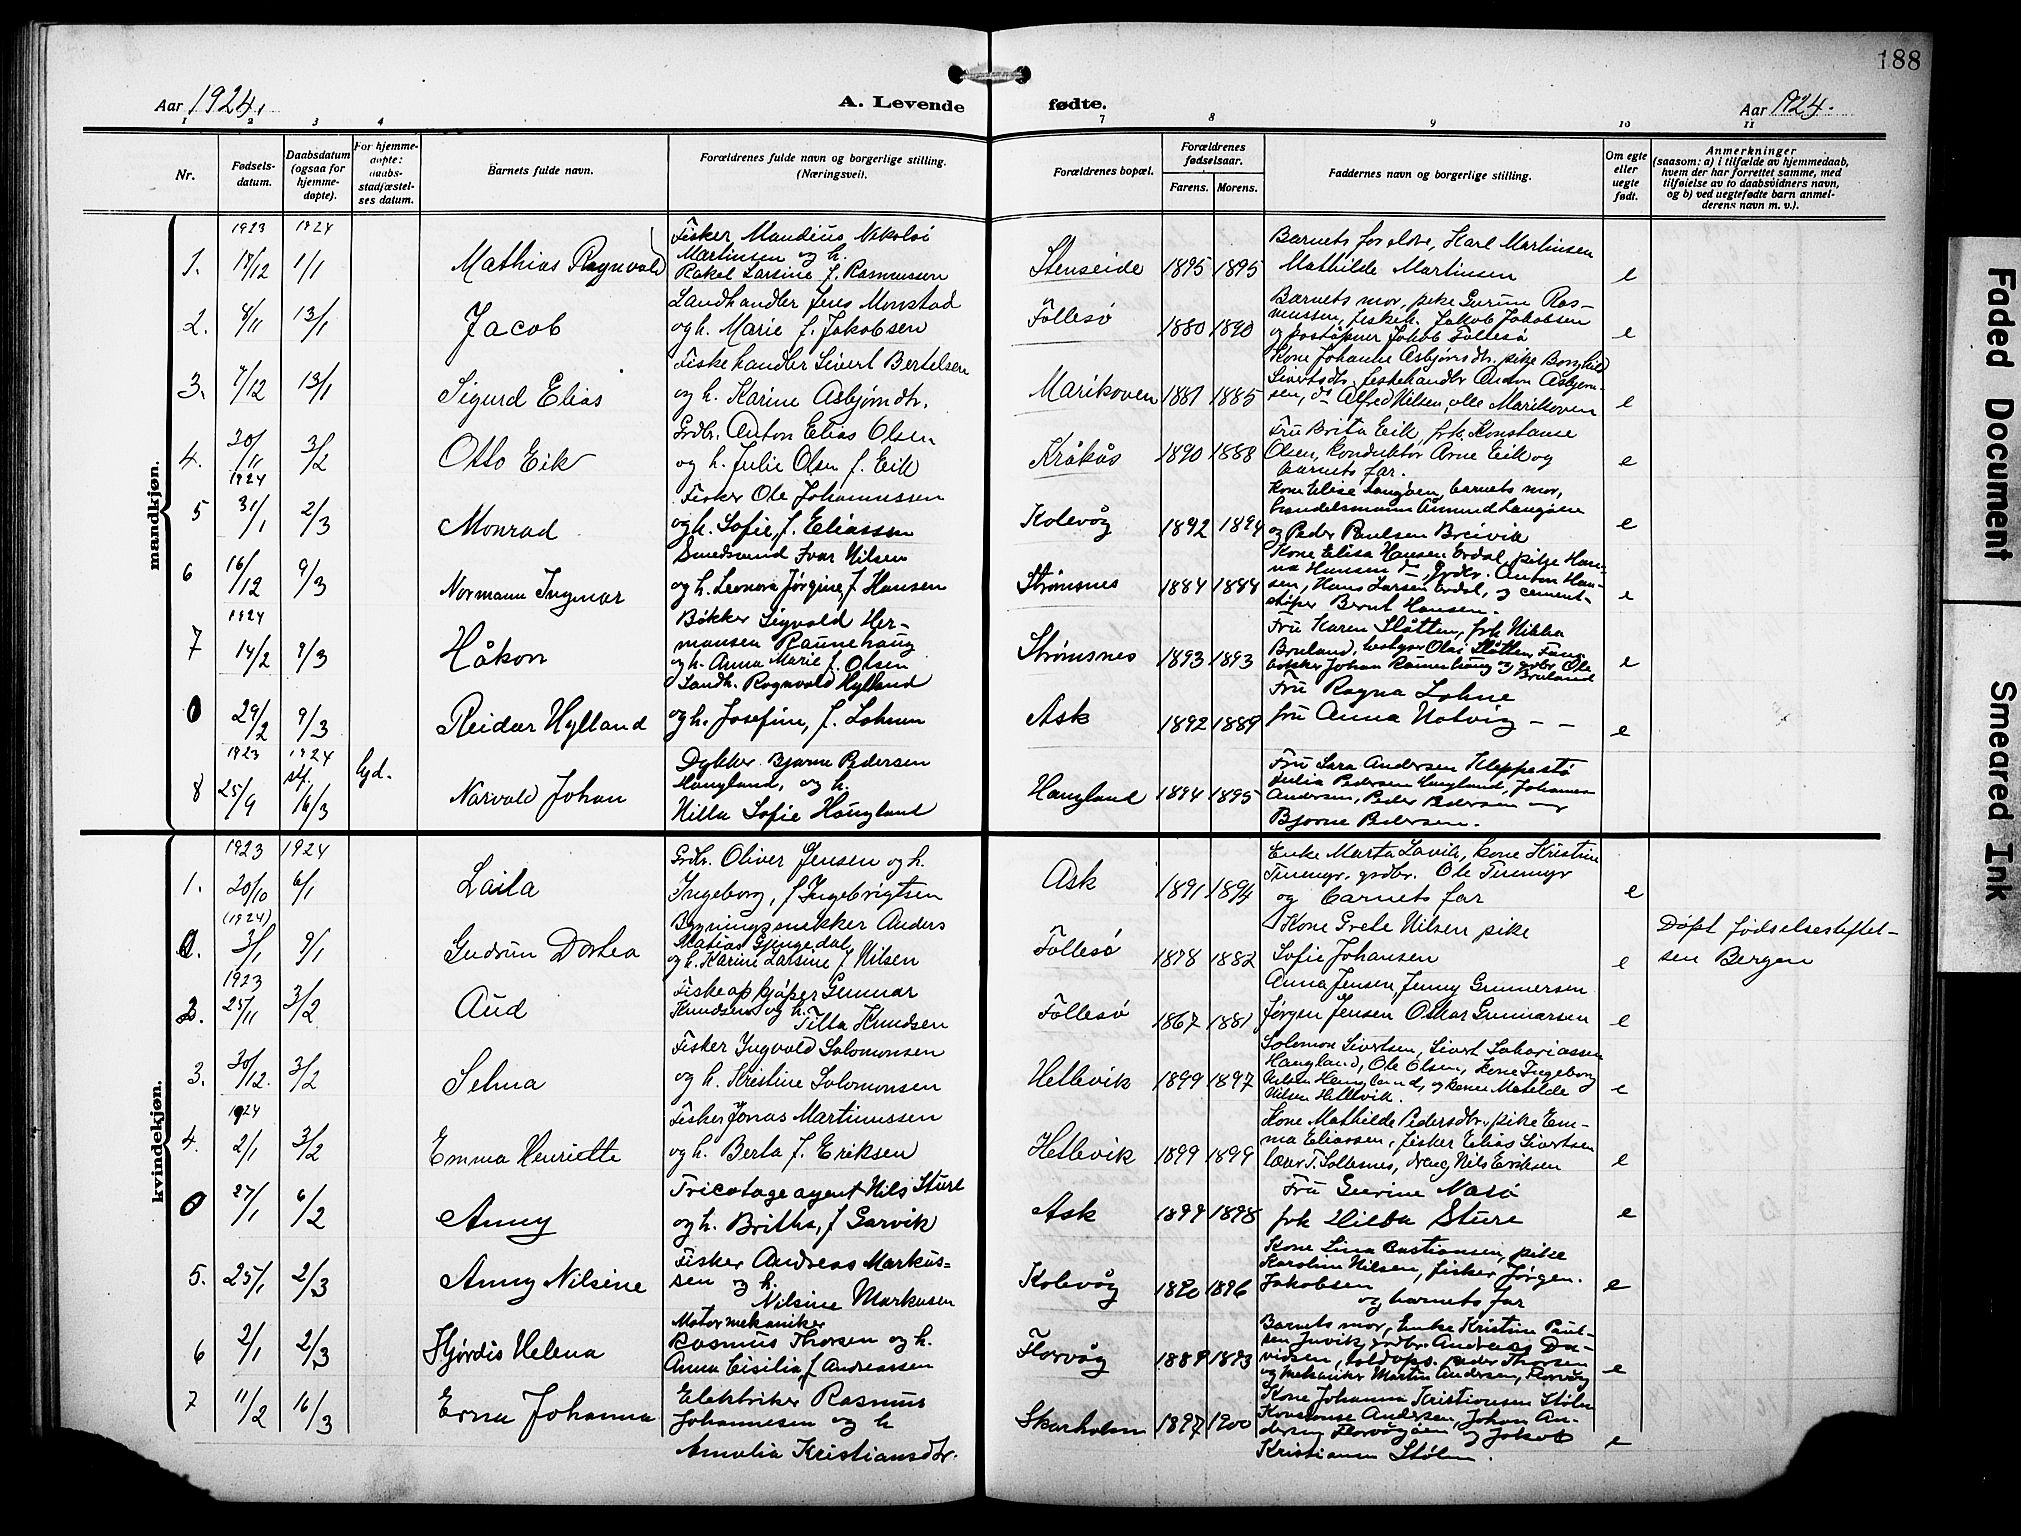 188
Aar 1924.
A. Levende
fødte.
Aar 1924.
1 2 3 4
7 8 9 10 11
Nr.
Fødsels-
datum.
Daabsdatum
(ogsaa for
hjemme-
døpte).
For hjemme-
døpte:
daabs-
stadfæstel-
ses datum.
Barnets fulde navn.
Forældrenes fulde navn og borgerlige stilling.
(Næringsvei).
Forældrenes bopæl.
Forældrenes
fødselsaar.
Farens. Morens.
Faddernes navn og borgerlige stilling.
Om egte
eller
uegte
født.
Anmerkninger
(saasom: a) i tilfælde av hjemmedaab,
hvem der har forrettet samme, med
tilføielse av to daabsvidners navn,
og b) ved uegtefødte barn anmel-
derens navn m. v.).
mandkjøn.
1923 1924
1. 17/12 1/1 Mathias Ragnvald
Fisker Mandius Nikolai
Martinsen og h.
Rakel Larsine f. Rasmussen
Stenseide 1895 1895
Barnets foreldre, Karl Martinsen
Mathilde Martinsen
e
2. 8/11 13/1 Jacob
Landhandler Jens Monstad
og h. Marie f. Jakobsen
Follesø 1880 1890
Barnets mor, pike Gurun Ras-
mussen, fiskeh. Jakob Jakobsen
og poståpner Jakob Follesø
e
3. 7/12 13/1 Sigurd Elias
Fiskehandler Sivert Bertelsen
og h. Karine Asbjørnsdtr.
Marikoven 1881 1885
Kone Johanne Asbjørnsdtr. pike Borghild
Sivertsdtr. fiskehandler Anton Asbjørn-
sen, do Alfred Nilsen, alle Marikoven
e
4. 30/11 3/2 Otto Eik
Grdbr. Anton Elias Olsen
og h. Julie Olsen f. Eik
Kråkås 1890 1888
Fru Brita Eik, frk. Konstanse
Olsen, konduktør Arne Eik og
barnets far.
e
1924
5 31/1 2/3 Monrad
Fisker Ole Johannessen
og h. Sofie, f. Eliassen
Kolevåg 1892 1894
Kone Elise Langøen, barnets mor,
handelsmann Åmund Langøen
og Peder Paulsen Breivik
e
6 16/12 9/3 Normann Ingmar
Smedsvend Ivar Nilsen
og h. Leonora Jørgine f. Hansen
Strømsnes 1884 1884
Kone Elisa Hansen Erdal, pike Han-
na Hansen do, grdbr. Anton Han-
sen, Hans Larsen Erdal, og cement-
støper Bernt Hansen.
e
1924
7 14/2 9/3 Håkon
Bøkker Sigvald Her-
mansen Raunehaug
og h. Anna Marie f. Olsen
Strømsnes 1893 1893
Fru Karen Slåtten, frk Nikka
Bruland, Olai Slåtten,
bøkker Johan Raunehaug og grdbr. Ole
Bruland
e
0 29/2 9/3 Reidar Hylland
Landh. Ragnvald Hylland
og h. Josefine, f. Lohne
Ask 1892 1889
Fru Ragna Lohne
fru Anna Hotvig – –
e
1923 1924
8 25/9 stf. 16/3 lyd. Narvald Johan
Dykker Bjarne Pedersen
Haugland, og h.
Nilla Sofie Haugland
Haugland 1894 1895
Fru Sara Andersen Kleppestø
Julia Pedersen Haugland, Johannes
Andersen, Peder Pedersen og
Bjarne Pedersen.
kvindekjøn.
1923 1924
1. 20/10 6/1 Laila
Grdbr. Oliver Jensen og h.
Ingeborg, f Ingebrigtsen
Ask 1891 1894
Enke Marta Lavik, kone Kristine
Tinmyr, grdbr. Ole Tinmyr
og barnets far
e
(1924)
0. 3/1 9/1 Gudrun Dorhea
Bygningssnekker Anders
Matias Gjingedal
og h. Karine Larsine f Nilsen
Follesø 1878 1882
Kone Grete Nilsen pike
Sofie Johansen
e
Døpt fødselsestiftel-
sen Bergen
1923
2. 25/11 3/2 Aud
Fiskeopkjøper Gunnar
Knudsen og h.
Tilla Knudsen
Follesø 1867 1881
Anna Jensen, Jenny Gunnersen
Jørgen Jensen Oskar Gunnarsen
e
3. 30/12. 3/2 Selma
Fisker Ingvald Salomonsen
og h. Kristine Salomonsen
Hellevik 1899 1897
Solomon Sivertsen, Sivert Sakariassen
Haugland, Ole Olsen, kone Ingeborg
Nilsen Haugland, og kone Matilde
Nilsen Hellevik.
e
1924
4. 2/1 3/2 Emma Henriette
Fisker Jonas Martinussen
og h. Berta f. Eriksen
Hetlevik 1899 1899
Kone Mathilde Pedersdtr, pike Em-
ma Eliassen, fisker Elias Sivertsen
lærer T. Sollesnes, dreng Nils Eriksen
e
0 27/1 6/2 Anny
Tricotage agent Nils Sture
og h. Britha, f Garvik
Ask 1899 1898
Fru Gurine Nasø
frk Hilda Sture
e
5. 25/1 2/3 Anny Nilsine
Fisker Andreas Markus-
sen og h.
Nilsine Markusen
Kolevåg 1890 1896
Kone Lina Bastiansen, pike
Karoline Nilsen, fisker Jørgen
Jakobsen
og barnets far
e
6 2/1 2/3 Hjørdis Helena
Motormekaniker
Rasmus Thorsen og h.
Anna Cisilia, f Andreassen
Florvåg 1889 1893
Barnets mor, Enke Kristine Paul-
sen Juvik, grdbr. Andreas Da-
vidsen, toldops. Peder Thorsen
og mekaniker Martin Andersen, Florvåg
e
7 11/2 16/3 Erna Johanna
Elektriker Rasmus
Johannesen og h
Amalia Kristiansdtr.
Skarholm 1897 1900
Kone Johanna Kristiansen Stølen
Konstanse Andersen, Johan An-
dersen Florvågøen og Jakob
Kristiansen Stølen.
e
Faded Document
Smeared Ink